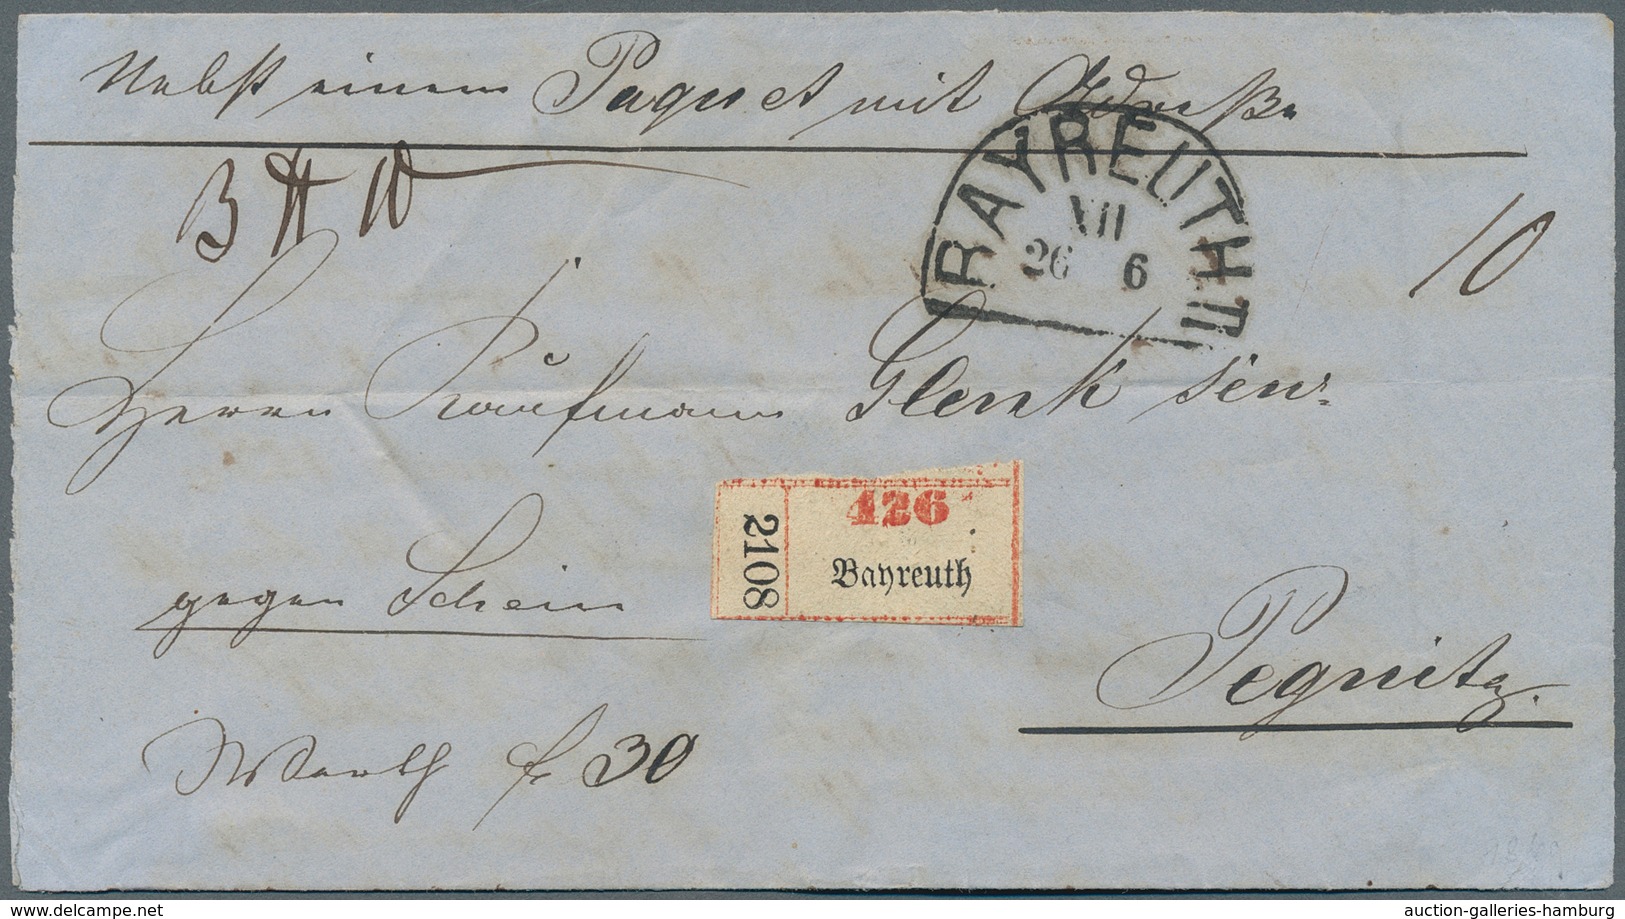 Nebst einem Paquet mit Adresse
BAYREUTH III
VII
26 6
10
Herrn Kaufmann Glenk sen:
426
2108
Bayreuth
gegen Schein
Pegnitz.
Werth f 30
auction-galleries-hamburg